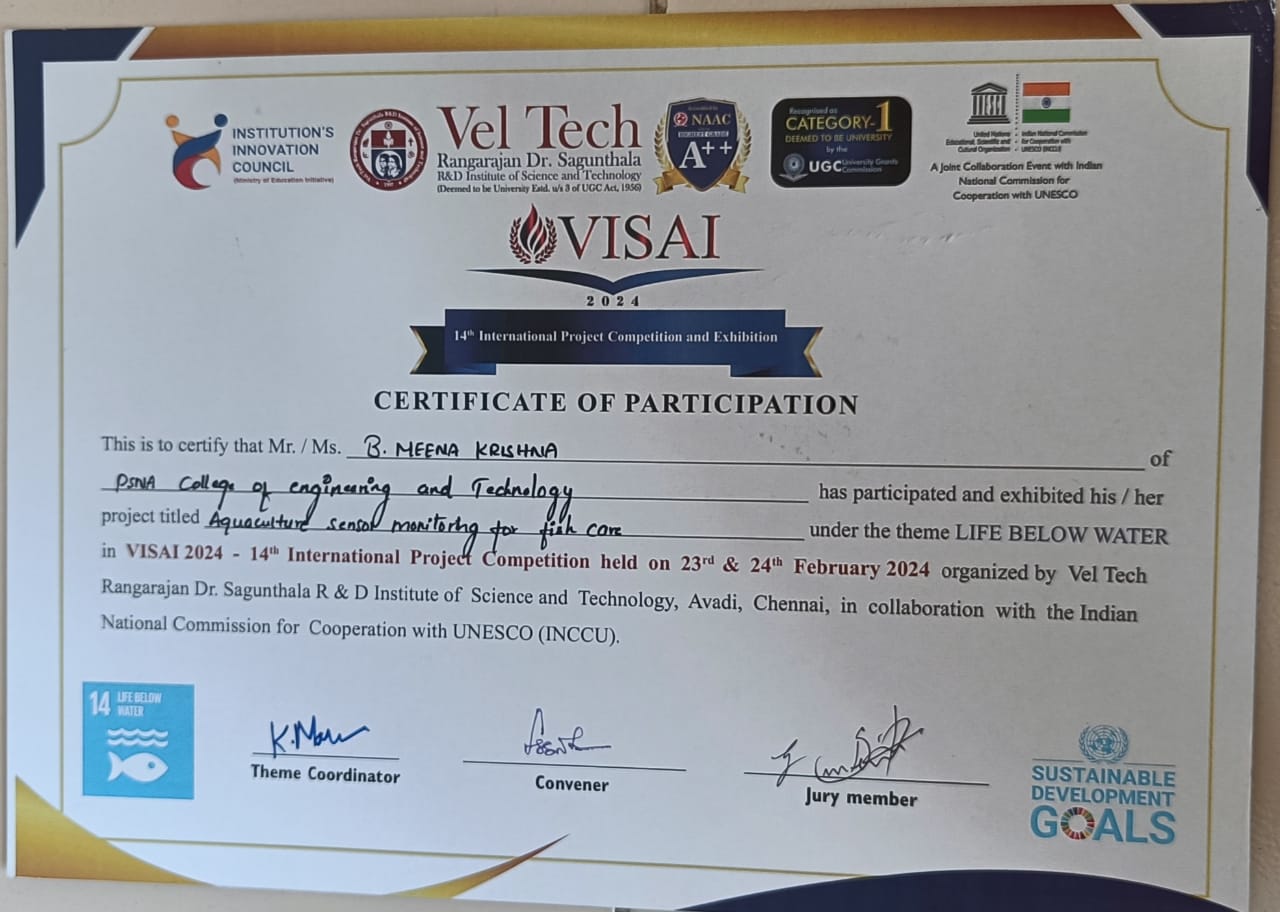 INSTITUTION'S
INNOVATION
COUNCIL
(Ministry of Education Initiative)
Vel Tech
Rangarajan Dr. Sagunthala
R&D Institute of Science and Technology
(Deemed to be University Estd. u/s 3 of UGC Act, 1956)
NAAC
A++
Recognised as
CATEGORY-1
DEEMED TO BE UNIVERSITY
by the
UGC University Grants
Commission
United Nations
Educational, Scientific and
Cultural Organization
Indian National Commission
for Cooperation with
UNESCO (INCCU)
A Joint Collaboration Event with Indian
National Commission for
Cooperation with UNESCO
VISAI
2024
14th International Project Competition and Exhibition
CERTIFICATE OF PARTICIPATION
This is to certify that Mr. / Ms. B. MEENA KRISHNA of
PSNA College of engineering and Technology has participated and exhibited his / her
project titled Aquaculture sensor monitoring for fish care under the theme LIFE BELOW WATER
in VISAI 2024 - 14th International Project Competition held on 23rd & 24th February 2024 organized by Vel Tech
Rangarajan Dr. Sagunthala R & D Institute of Science and Technology, Avadi, Chennai, in collaboration with the Indian
National Commission for Cooperation with UNESCO (INCCU).
14 LIFE BELOW
WATER
Theme Coordinator
Convener
Jury member
SUSTAINABLE
DEVELOPMENT
GOALS